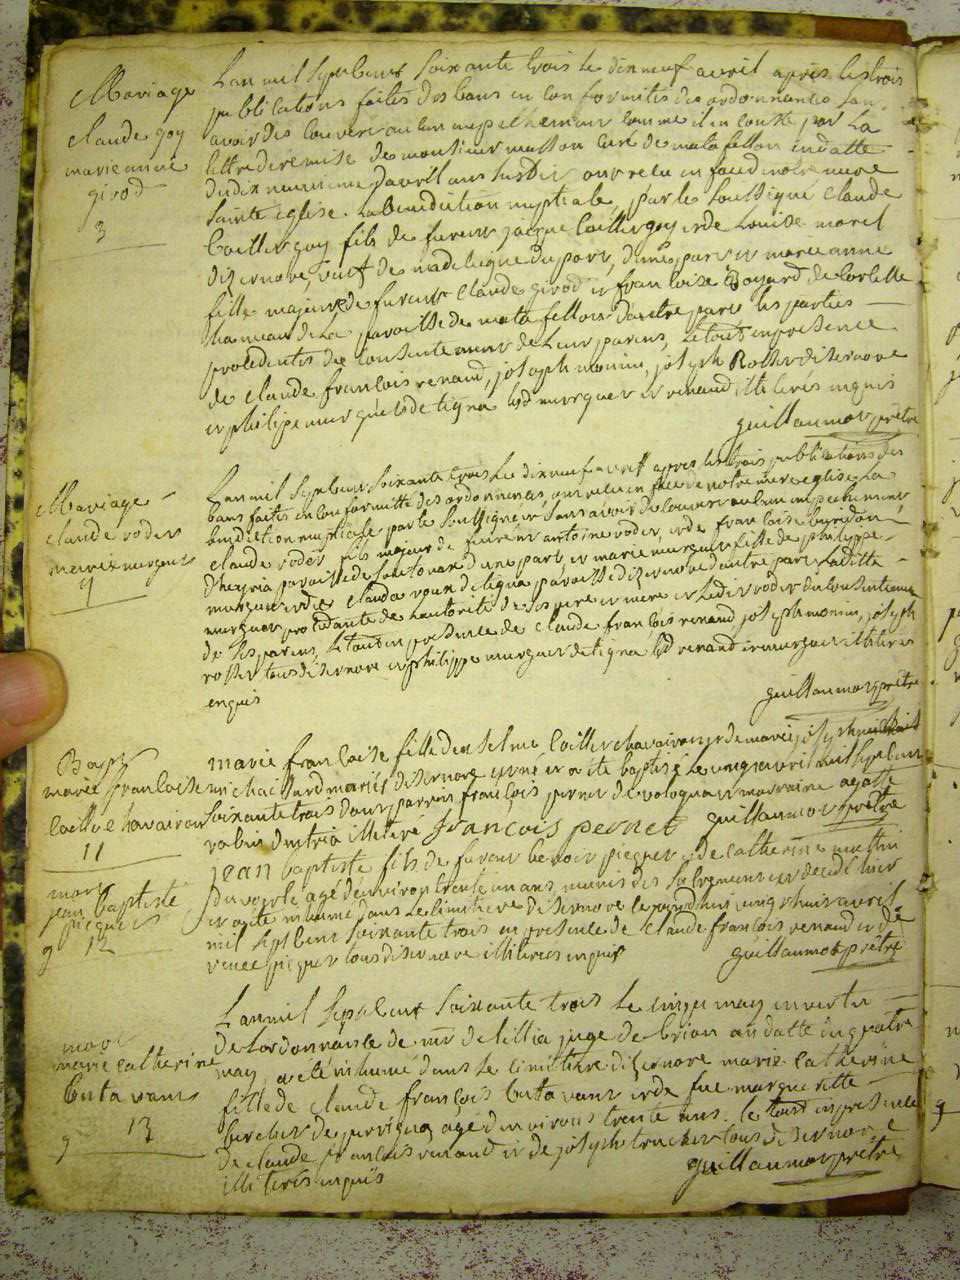 Mariage
claude goy
marie anne
girod
3
L'an mil sept cent soixante trois le dix neuf avril apres les trois
publications faites des bans en conformites des ordonnances sans
avoir decouvert aucun empechement comme il en conste par la
lettre de remise de monsieur masson curé de matafellon en datte
du dix neuvieme d'avril ont reçu en face de notre mere
sainte eglise la benediction nuptiale, par le soussigné claude
caillet goy fils de fut jacque caillet goy et de Louise morel
dizernore, veuf de du port, d'une part et marie anne
fille majeure de fut claude girod et francoise Boyard de corcelle
hameau de la paroisse de matafellon d'autre part les parties
procedentes du consentement de leur parens, le tout en presence
de claude françois renaud, joseph monin, joseph Rosset disernore
et philipe murguet de tigna led murguet et renaud illiterés enquis
guillaumot prêtre
Mariage
claude rodet
marie murguet
9
L'an mil sept cent soixante trois le dix neuf avril apres les trois publications des
bans faites en conformitté des ordonnances, ont reçu en face de notre mere eglise la
benediction nuptiale par le soussigné et sans avoir decouvert aucun empechement
claude rodet fils majeur de fut antoine rodet, et de francoise
d'heyria paroisse de d'une part, et marie murguet fille de philippe
murguet et de clauda roux de tigna paroisse dizernore d'autre part laditte
murguet procedante de l'autorité de ses pere et mere et ledit rodet du consentement
de ses parens, le tout en presence de claude françois renaud, joseph monin, joseph
rosset tous disernore et philippe murguet de tigna led renaud et murguet illiteres
enquis
guillaumot prêtre
Bapt
marie francoise
caillet chavairon
11
marie francoise fille d'anselme caillet chavairon et de marie
michaillard mariés disernore est né et a été baptisé le vingt avril mil sept cent
soixante trois dont parrein françois pernet de volognat marraine agathe
robin illiteré françois pernet guillaumot prêtre
mort
jean baptiste
picquet
g 12
jean baptiste fils de fut benoit picquet et de catherine
age d'environ trente un ans, munis des sacremens est decedé hier
et a été inhumé dans le cimitiere disernore le jourd'hui vingt huit avril
mil sept cent soixante trois en presence de claude francois renaud et de
picquet tous disernore illiteres enquis guillaumot prêtre
mort
marie catherine
butavant
g 13
L'an mil sept cent soixante trois le cinq may en vertu
de l'ordonnance de mr de lillia juge de brion en datte du quatre
may, a été inhumé dans le cimitiere dizernore marie catherine
fille de claude françois butavant et de fue marguerite
bercher de agé d'environ trente ans. le tout en presence
de claude francois renaud et de joseph trucher tous disernore
illiterés enquis guillaumot prêtre